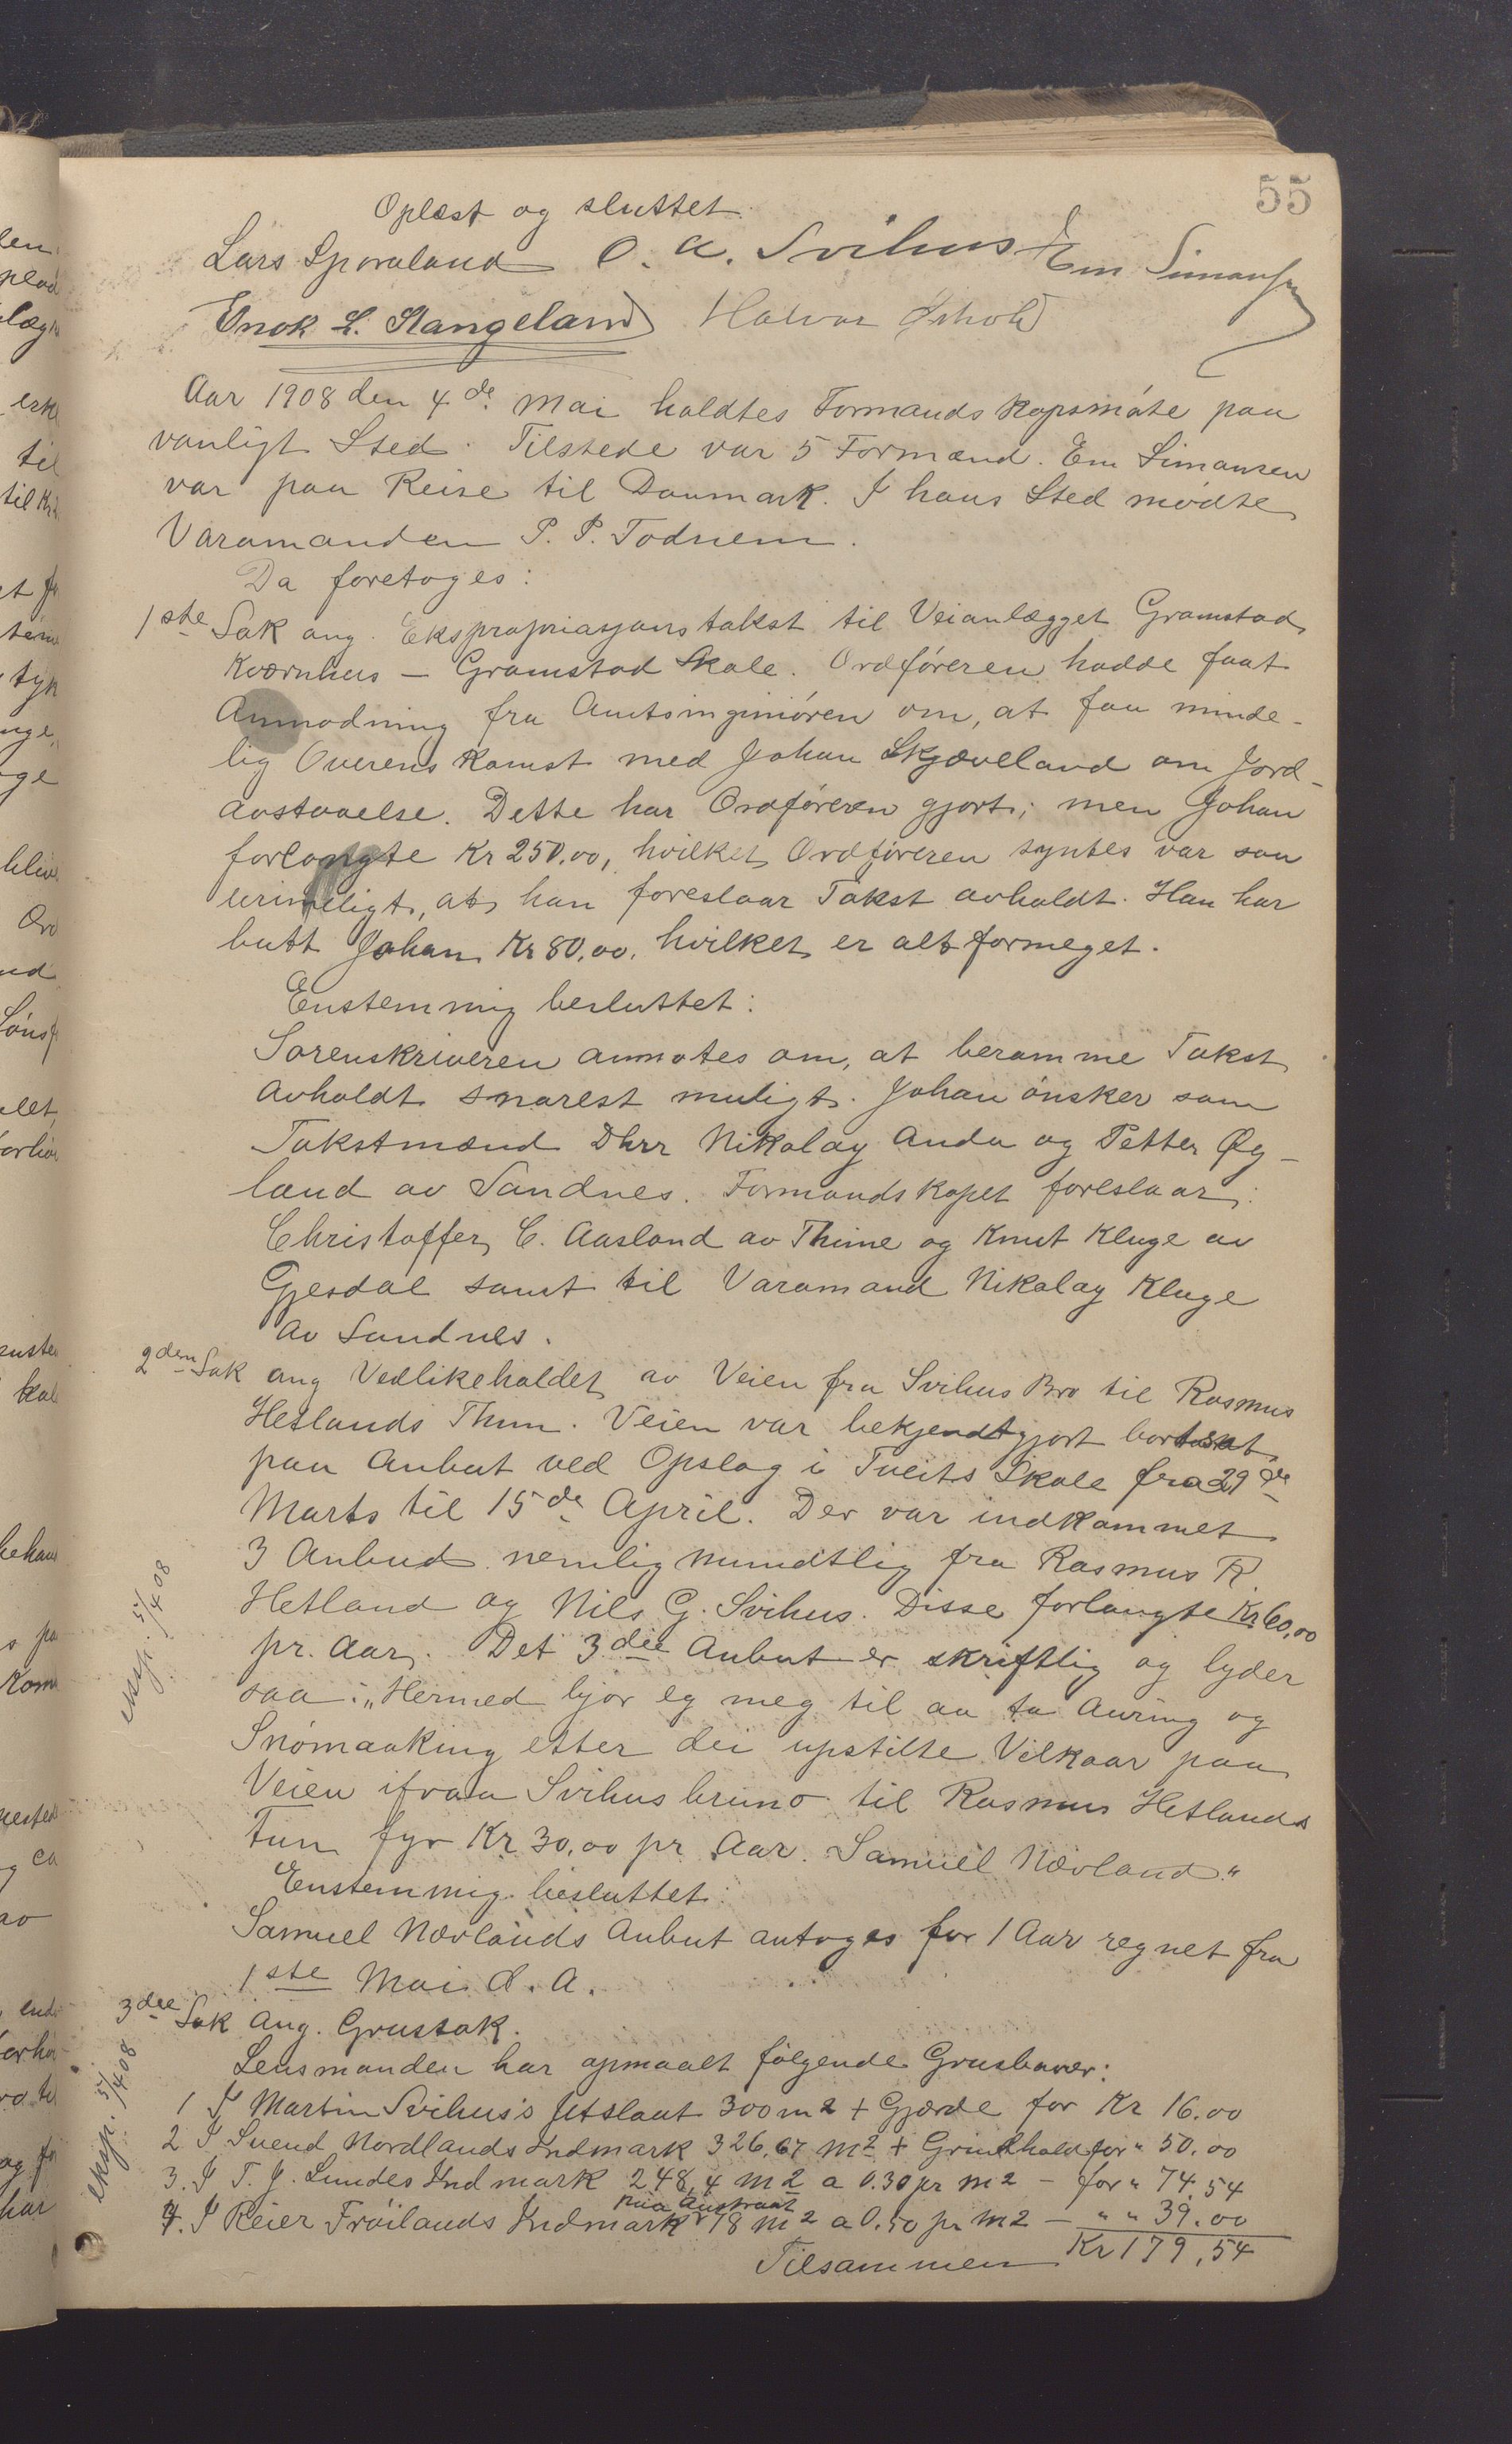 55
Oplæst og sluttet.
Lars Sporaland O. A. Svihus Em Simonsen
Enok L. Stangeland Halvar
Aar 1908 den 4de Mai holdtes Formandskapsmóte paa
vanligt Sted. Tilstede var 5 Formænd. Em Simonsen
var paa Reise til Danmark. I hans Sted mødte
Varamanden P. P. Todnem.
Da foretoges:
1ste Sak ang. Ekspropriasjons takst til Veianlægget Gramstad
Kværnhus — Gramstad Skole. Ordfóreren hadde faat
Anmodning fra Amtsingeniören om, at faa minde-
lig Overenskomst med Johan Skjæveland om Jord-
avstaaelse. Dette har Ordfóreren gjort; men Johan
forlangte Kr 250,00, hvilket Ordfóreren syntes var saa
urimeligt, at han foreslaar Takst avholdt. Han har
butt Johan Kr 80,00, hvilket er alt formeget.
Enstemmig besluttet:
Sorenskriveren anmotes om, at beramme Takst
avholdt snarest muligt. Johan ónsker som
Takstmænd Dhrr Nikolay Anda og Petter Øg-
land av Sandnes. Formandskapet foreslaar:
Christoffer C. Aasland av Thime og Knut Kluge av
Gjesdal samt til Varamand Nikolay Kluge
av Sandnes.
2den Sak ang Vedlikeholdet av Veien fra Svihus Bro til Rasmus
Hetlands Thun. Veien var bekjendtgjort bortsat
paa Anbut ved Opslag i Tveits Skole fra 29de
Marts til 15de April. Der var indkommet
3 Anbud nemlig mundtlig fra Rasmus R
Hetland og Nils G. Svihus. Disse forlangte Kr 60,00
pr. Aar. Det 3die Anbut er skriftlig og lyder
saa: „Hermed bjór eg meg til aa ta Auring og
Snómaaking etter dei upstilte Vilkaar paa
Veien ifraa Svihusbruno til Rasmus Hetlands
Tun fyr Kr 30,00 pr Aar. Samuel Nævland."
Enstemmig besluttet:
Samuel Nævlands Anbut antoges for 1 Aar regnet fra
1ste Mai d. A.
eksp. 5/4 08
3die Sak Ang. Grustak.
Lensmanden har opmaalt fólgende Grusbaner:
1 I Martin Svihus's Utslaat 300 m2 + Gjærde for Kr 16.00
2 I Svend Nordlands Indmark 326,67 m2 + Grindhold for " 50.00
3. I T. J. Lundes Indmark 248,4 m2 a 0.30 pr m2 — for " 74.54
nia Austraat
4. I Reier Fröilands Indmark 78 m2 a 0.50 pr m2 — " " 39.00
Tilsammen Kr 179,54
eksp. 5/4 08